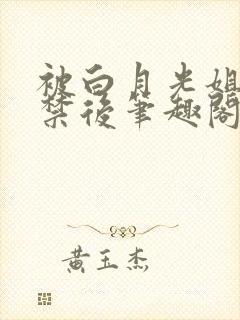 被白月光姐
禁後筆趣閣
黄玉杰